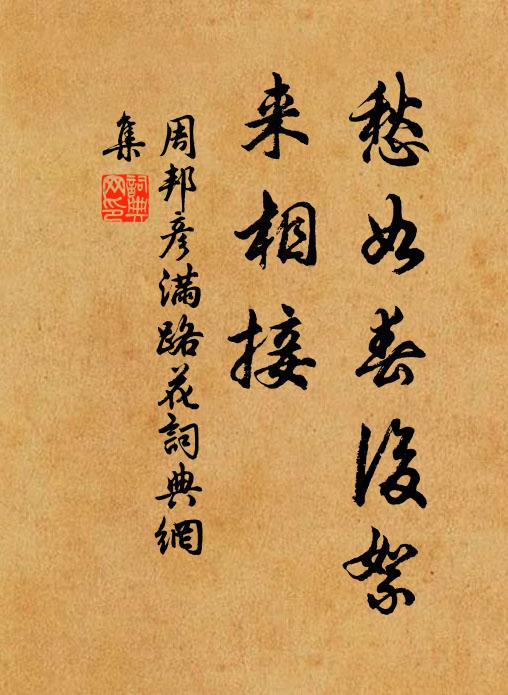 愁如春後絮
来相接
周邦彦滿路花詞典網
集
詞典网印